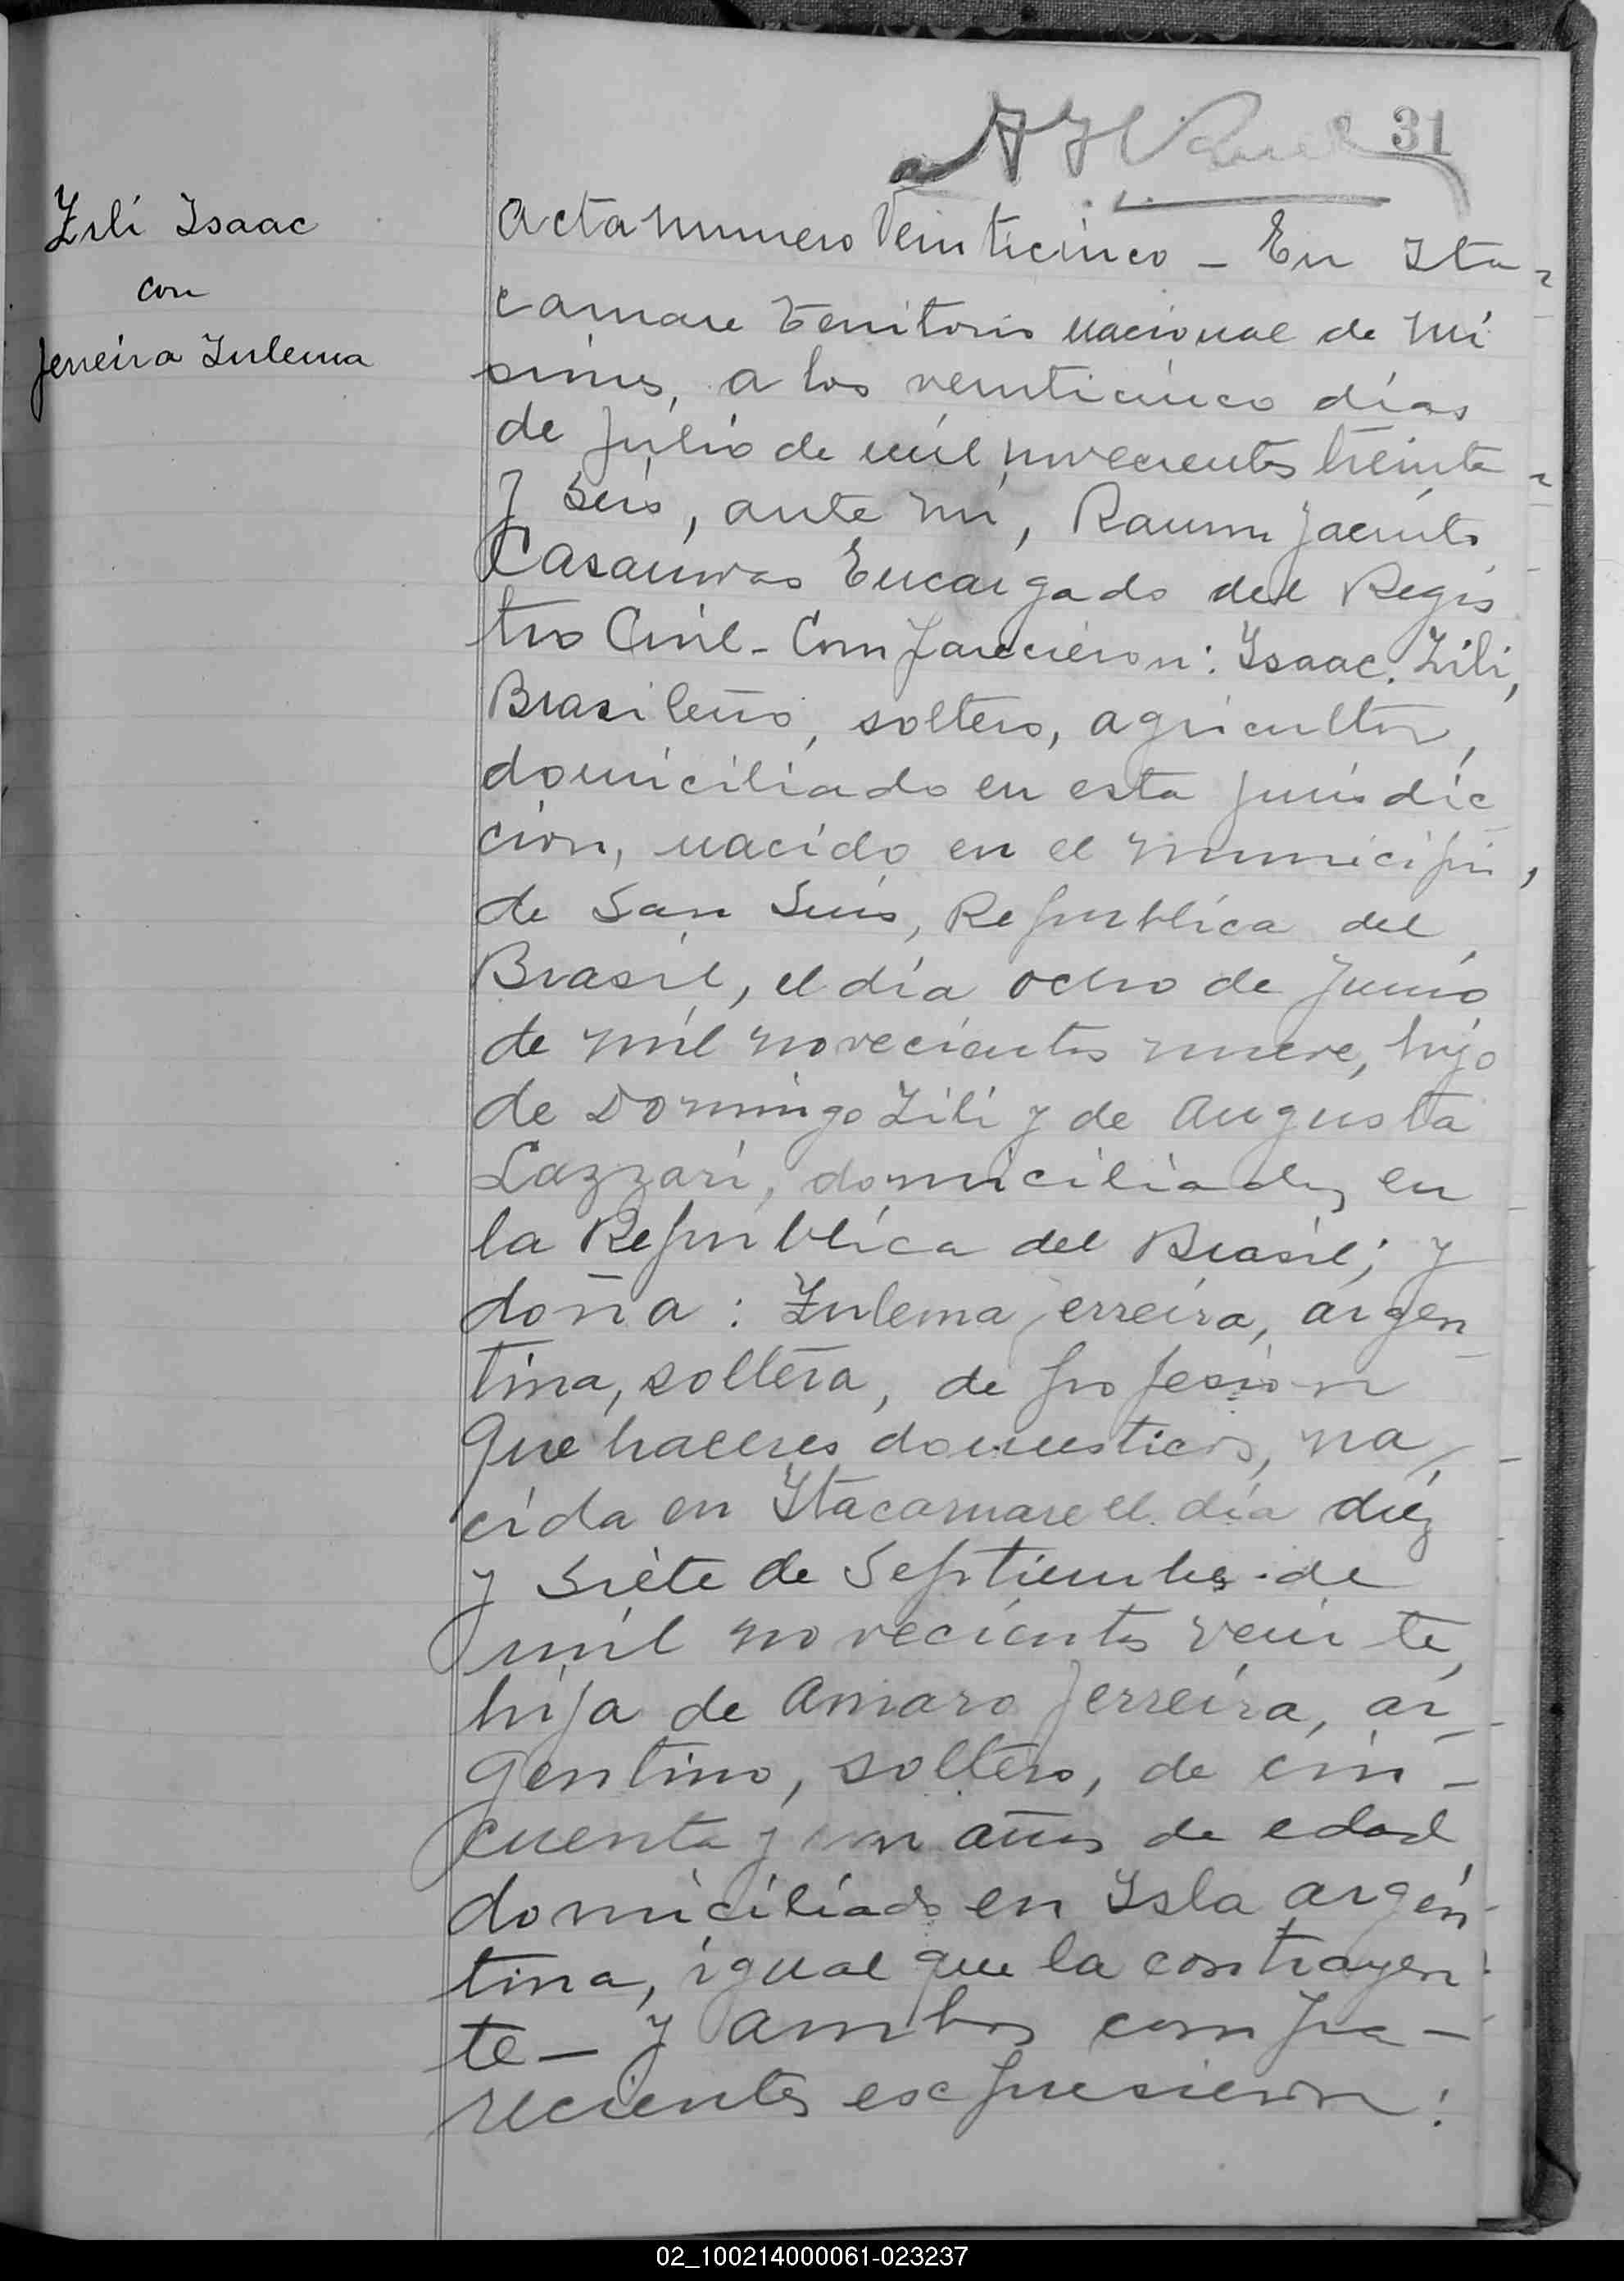 31
Zili Isaac
con
Ferreira Zulema
Acta numero Veinticinco - En Ita-
camare Territorio nacional de Mi
siones, a los veinticinco días
de Julio de mil novecientos treinta
y seis, ante mí, Ramon Jacinto
Casanovas Encargado del Regis
tro Civil - Comparecieron: Isaac Zili,
Brasileño, soltero, agricultor,
domiciliado en esta jurisdic
cion, nacido en el municipio,
de San Luis, Republica del
Brasil, el día ocho de Junio
de mil novecientos nueve, hijo
de Domingo Zili y de Augusta
Lazzari, domiciliados en
la Republica del Brasil; y
doña: Zulema Ferreira, argen
tina, soltera, de profesion
que haceres domesticos, na
cida en Itacamare el día diez
y siete de Septiembre de
mil novecientos veinte,
hija de Amaro Ferreira, ar
gentino, soltero, de cin-
cuenta y un años de edad
domiciliado en Isla argen
tina, igual que la contrayen
te - y ambos compa-
recientes expresieron:
02_100214000061-023237